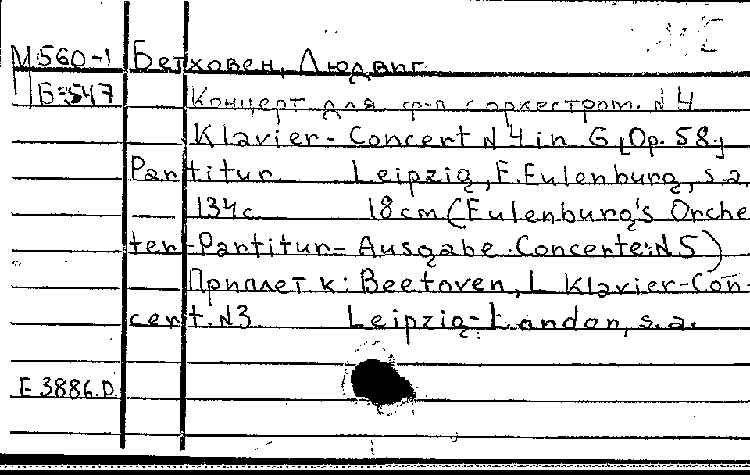 М560-1 Бетховен, Людвиг
Б=547 Концерт для ф-п с оркестром. N 4
Klavier-Concert N 4 in G, Op. 58.
Partitur. Leipzig, E. Eulenburg, s.a.
134с. 18 cm (Eulenburg's Orche
ter-Partitur=Ausgabe. Concerte: N5)
Приплет к: Beetoven, L Klavier-Con-
cert. N3. Leipzig-London, s.a.
E 3886.D